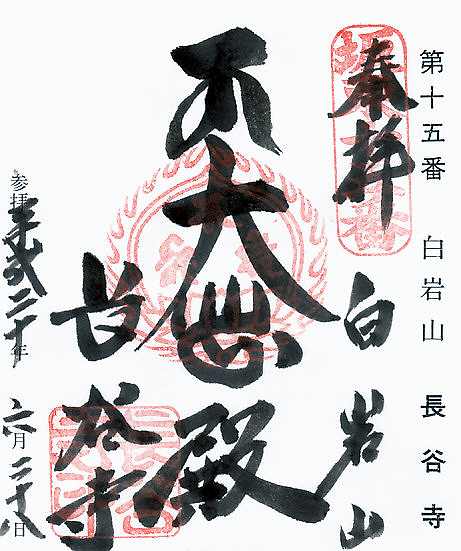 第十五番 白岩山 長谷寺
奉拝
白岩山
大悲殿
長谷寺
参拝 平成二十年 六月二十八日